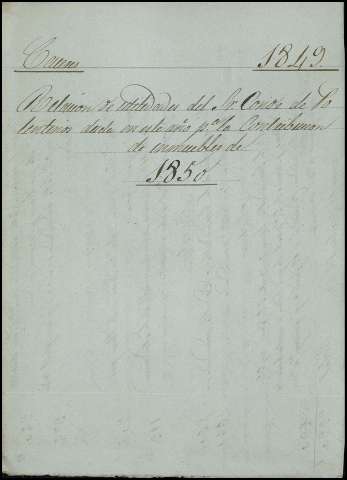 Caceres 1849.
Relacion de utilidades del Sr. Conde de To
rreorios dada en este año pa. la Contribucion
de inmuebles de
1850.